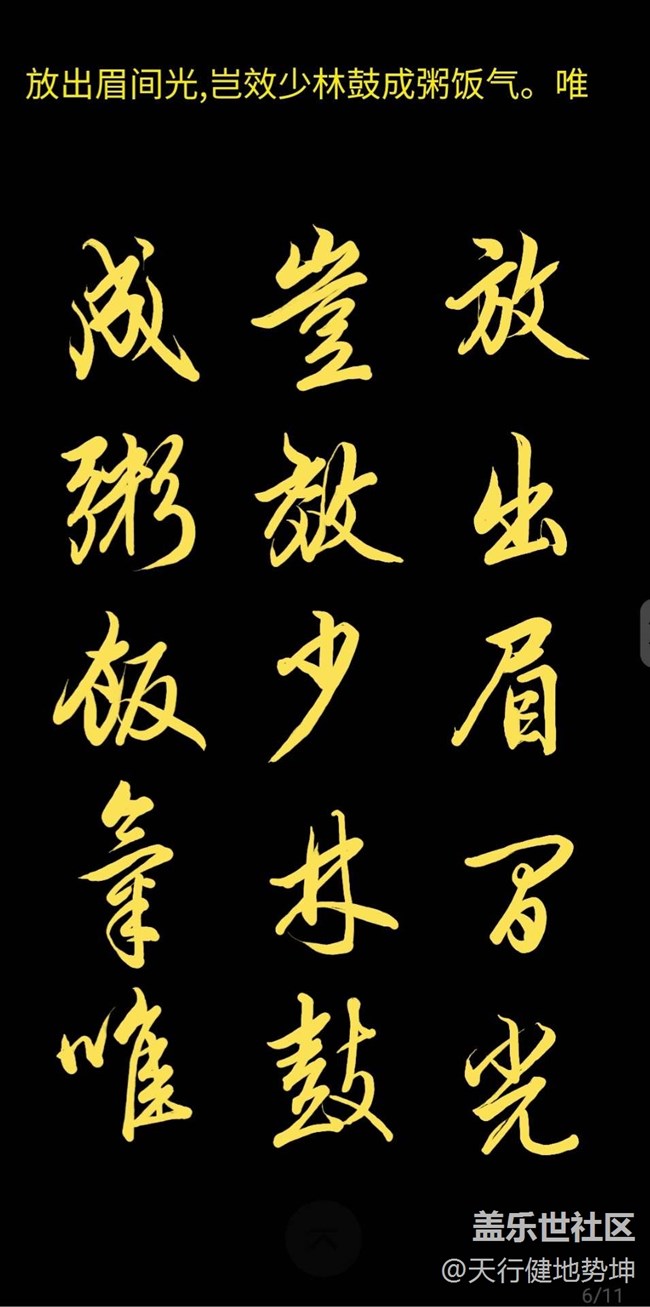 放出眉间光,岂效少林鼓成粥饭气。唯
放出眉间光
豈效少林鼓
成粥饭氣唯
盖乐世社区
@天行健地势坤
6/11